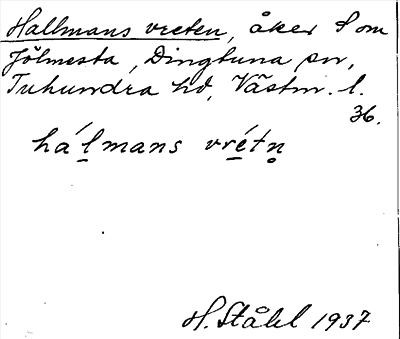 Hallmans vreten, åker S om
Jölmesta, Dingtuna sn,
Tuhundra hd, Västm. l.
36.
há̱lmans vré̱tn̥
H. Ståhl 1937